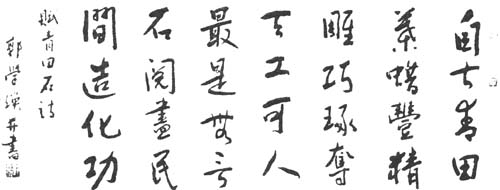 自古青田
葉蜡豐精
雕巧琢奪
天工可人
最是無言
石閱盡民
間造化功
賦青田石詩
郭學煥并書